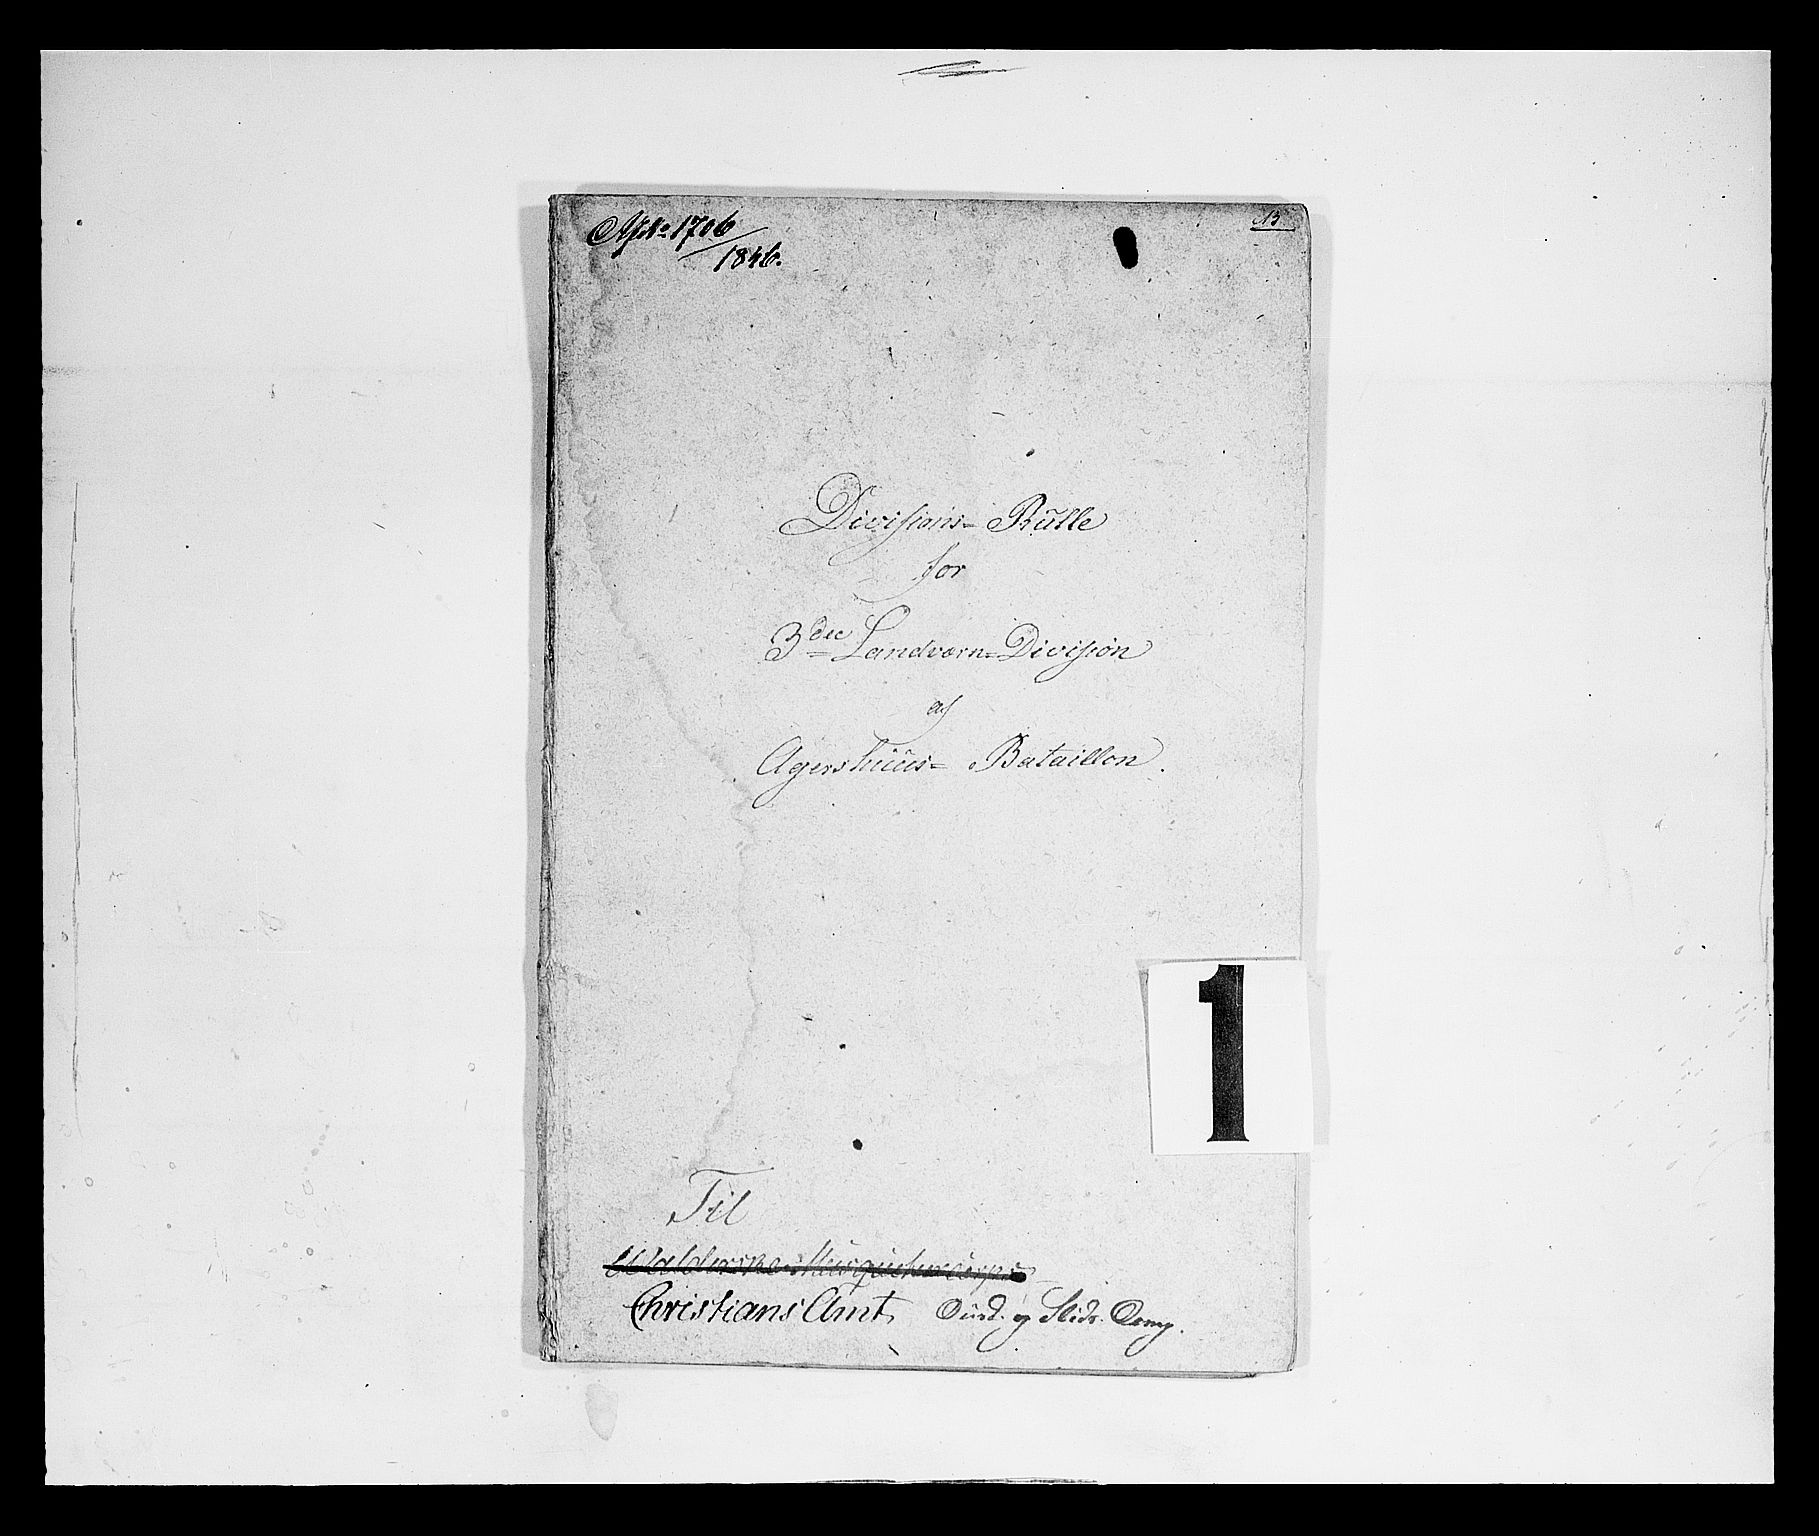 No 1706/1846.
13
Divisions= Rulle
for
3die Landværn=Division
af
Agershuus= Bataillon.
1
Til
Christians Amt, og